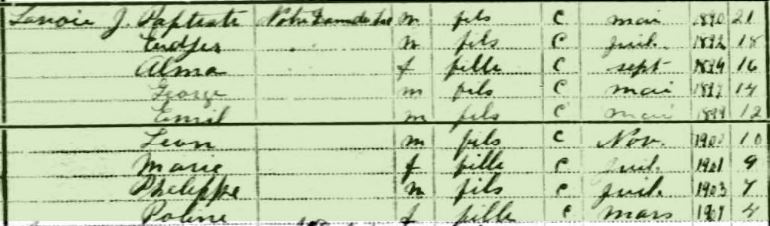 Lavoie J. Baptiste Notre Dame du Lac m fils C mai 1890 21
m fils C juil. 1892 18
Alma f fille C sept 1894 16
George m fils C mai 1897 14
Emil m fils C mai 1899 12
Leon m fils C Nov. 1900 10
Marie f fille C juil. 1901 9
Philippe m fils C juil. 1903 7
Poline f fille C mars 1907 4